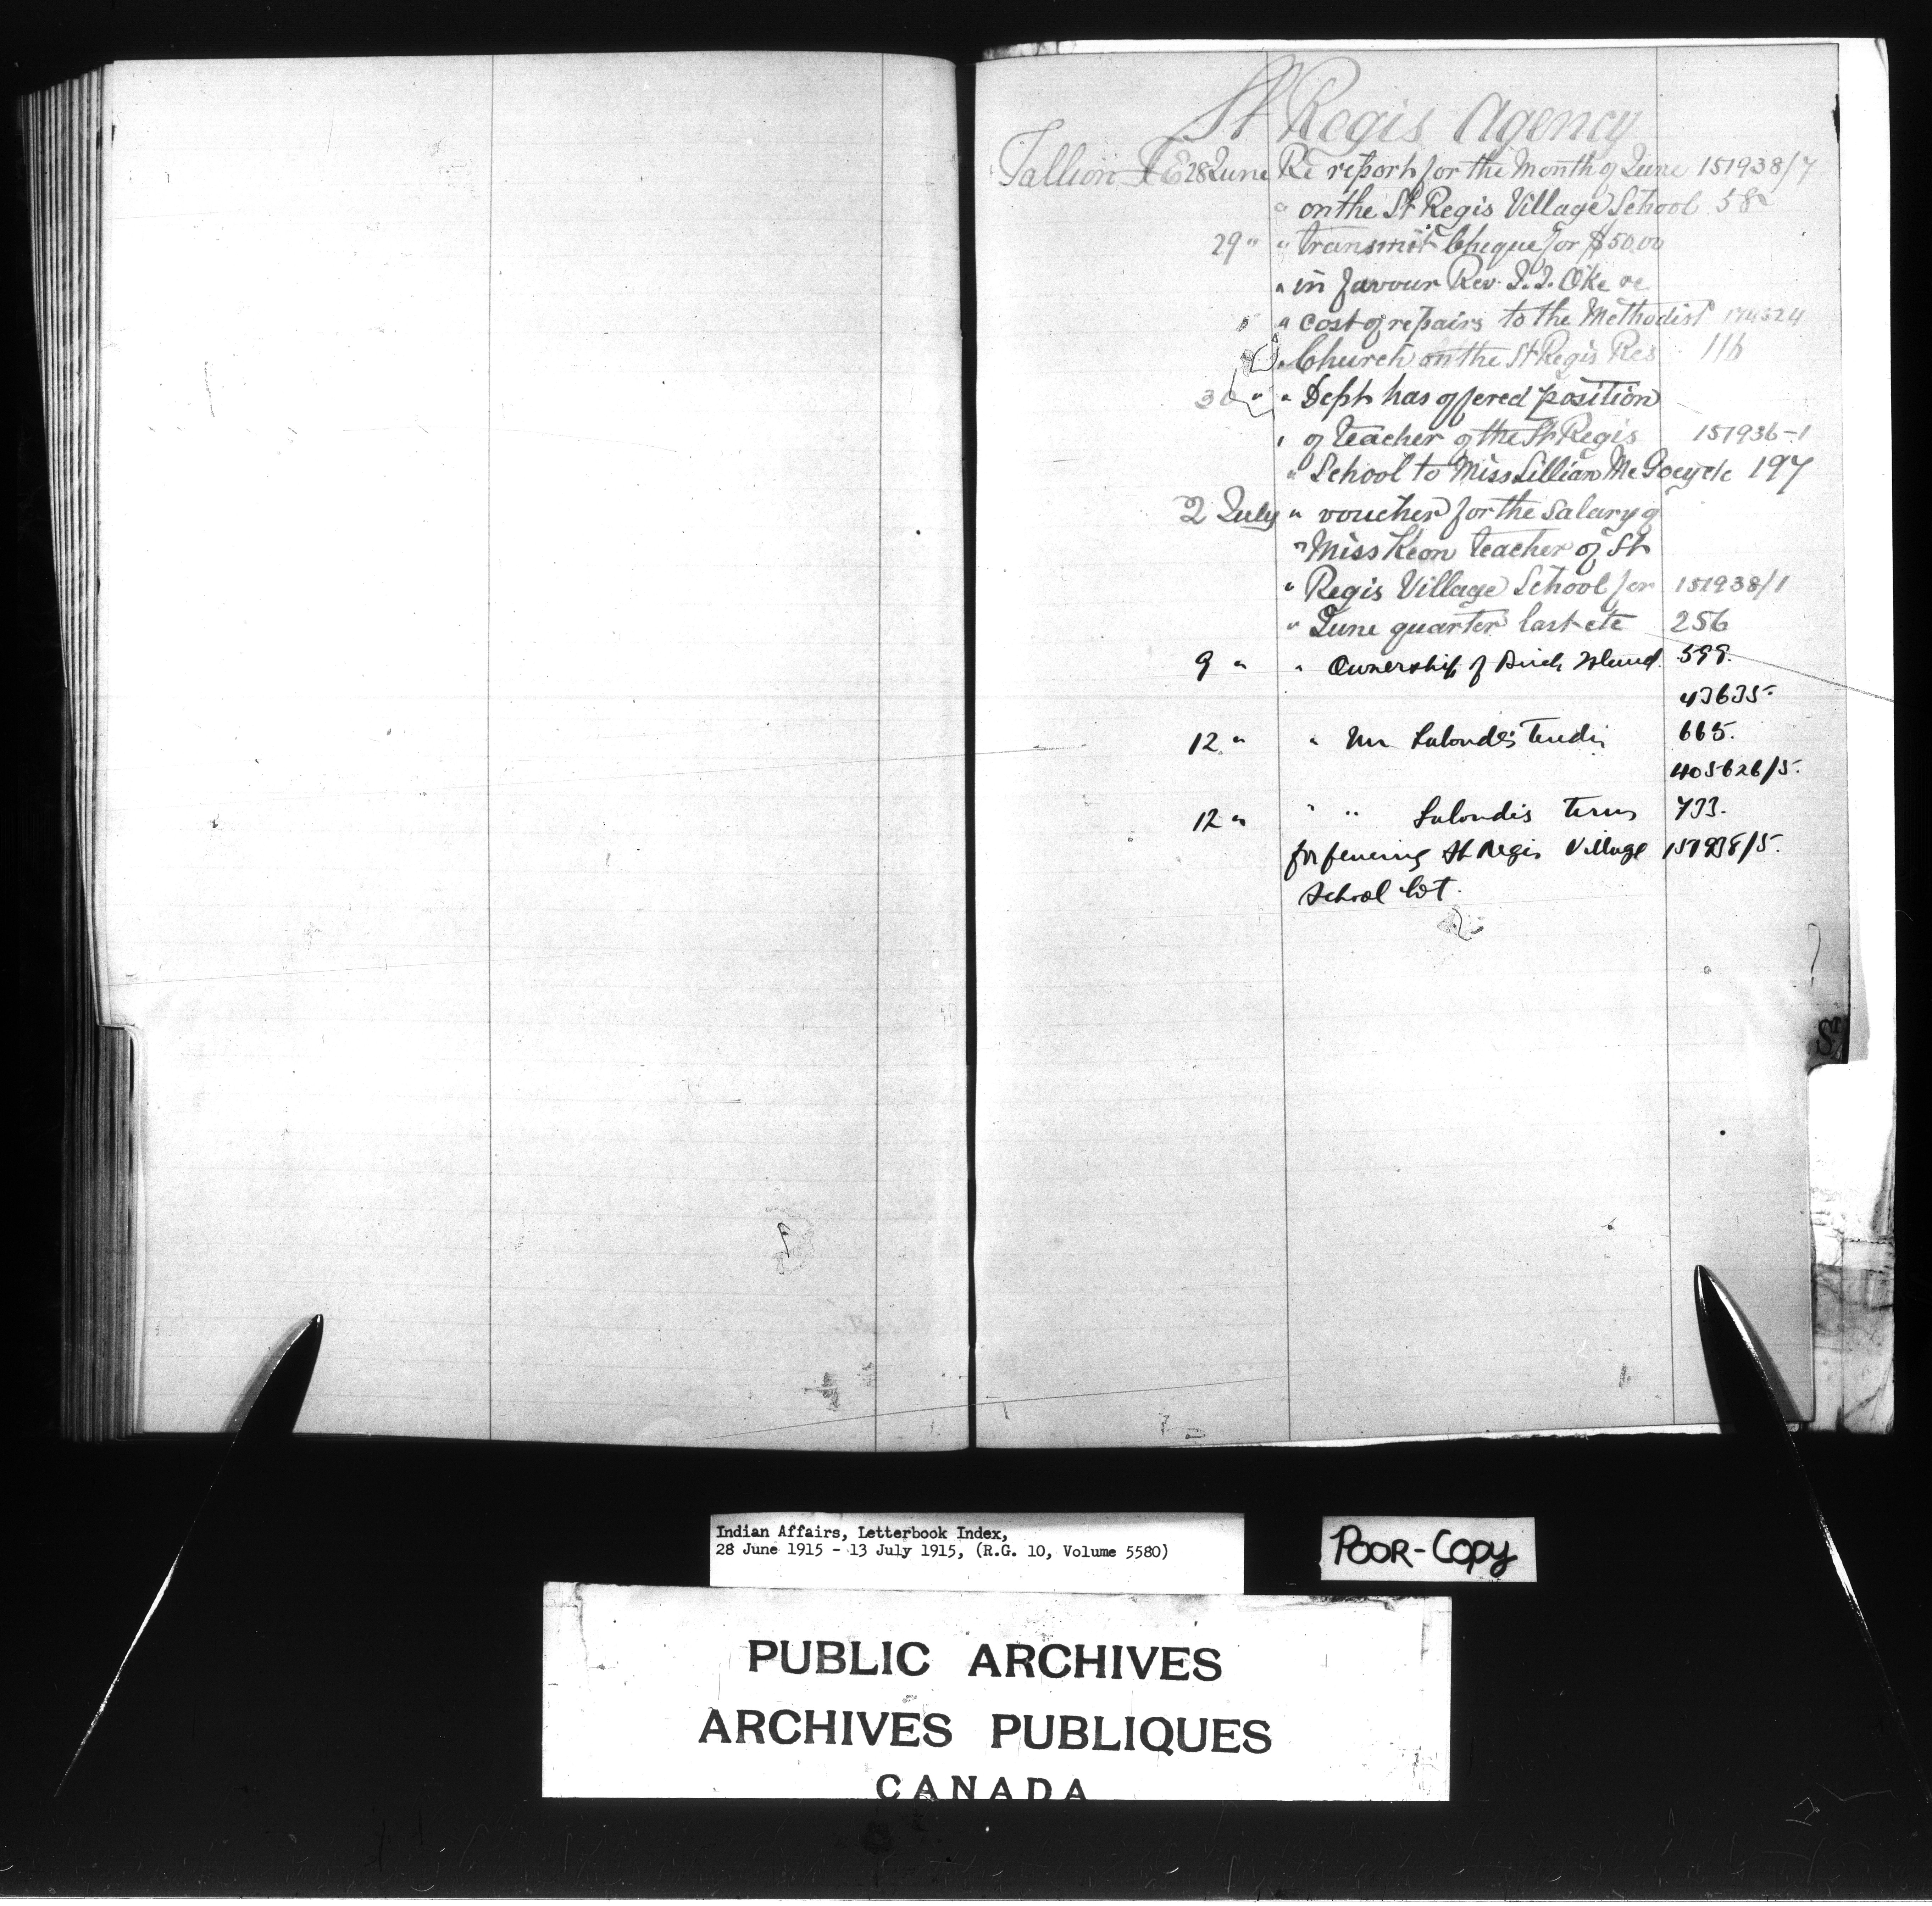 St Regis Agency
Tallion F E 28 June Re report for the Month of June 151938/7
" on the St Regis Village School 58
29 " " transmit Cheque for $50.00
" in favour Rev. J. J. Oke re
" cost of repairs to the Methodist
" Church on the St Regis Res 116
30 " " Dept has offered position
" of teacher of the St Regis 151936-1
" School to Miss Lillian 197
2 July " voucher for the Salary of
" Miss Keon teacher of St
" Regis Village School for 151938/1
" June quarter last etc 256
9 " " Ownership of Birch Island. 599.
43635.
12 " " Mr Lalonde's tender 665.
405626/5.
12 " " " Lalonde's terms 733.
for fencing St Regis Village 151938/5.
School lot.
St
Indian Affairs, Letterbook Index,
28 June 1915 - 13 July 1915, (R.G. 10, Volume 5580)
POOR-COPY
PUBLIC ARCHIVES
ARCHIVES PUBLIQUES
CANADA